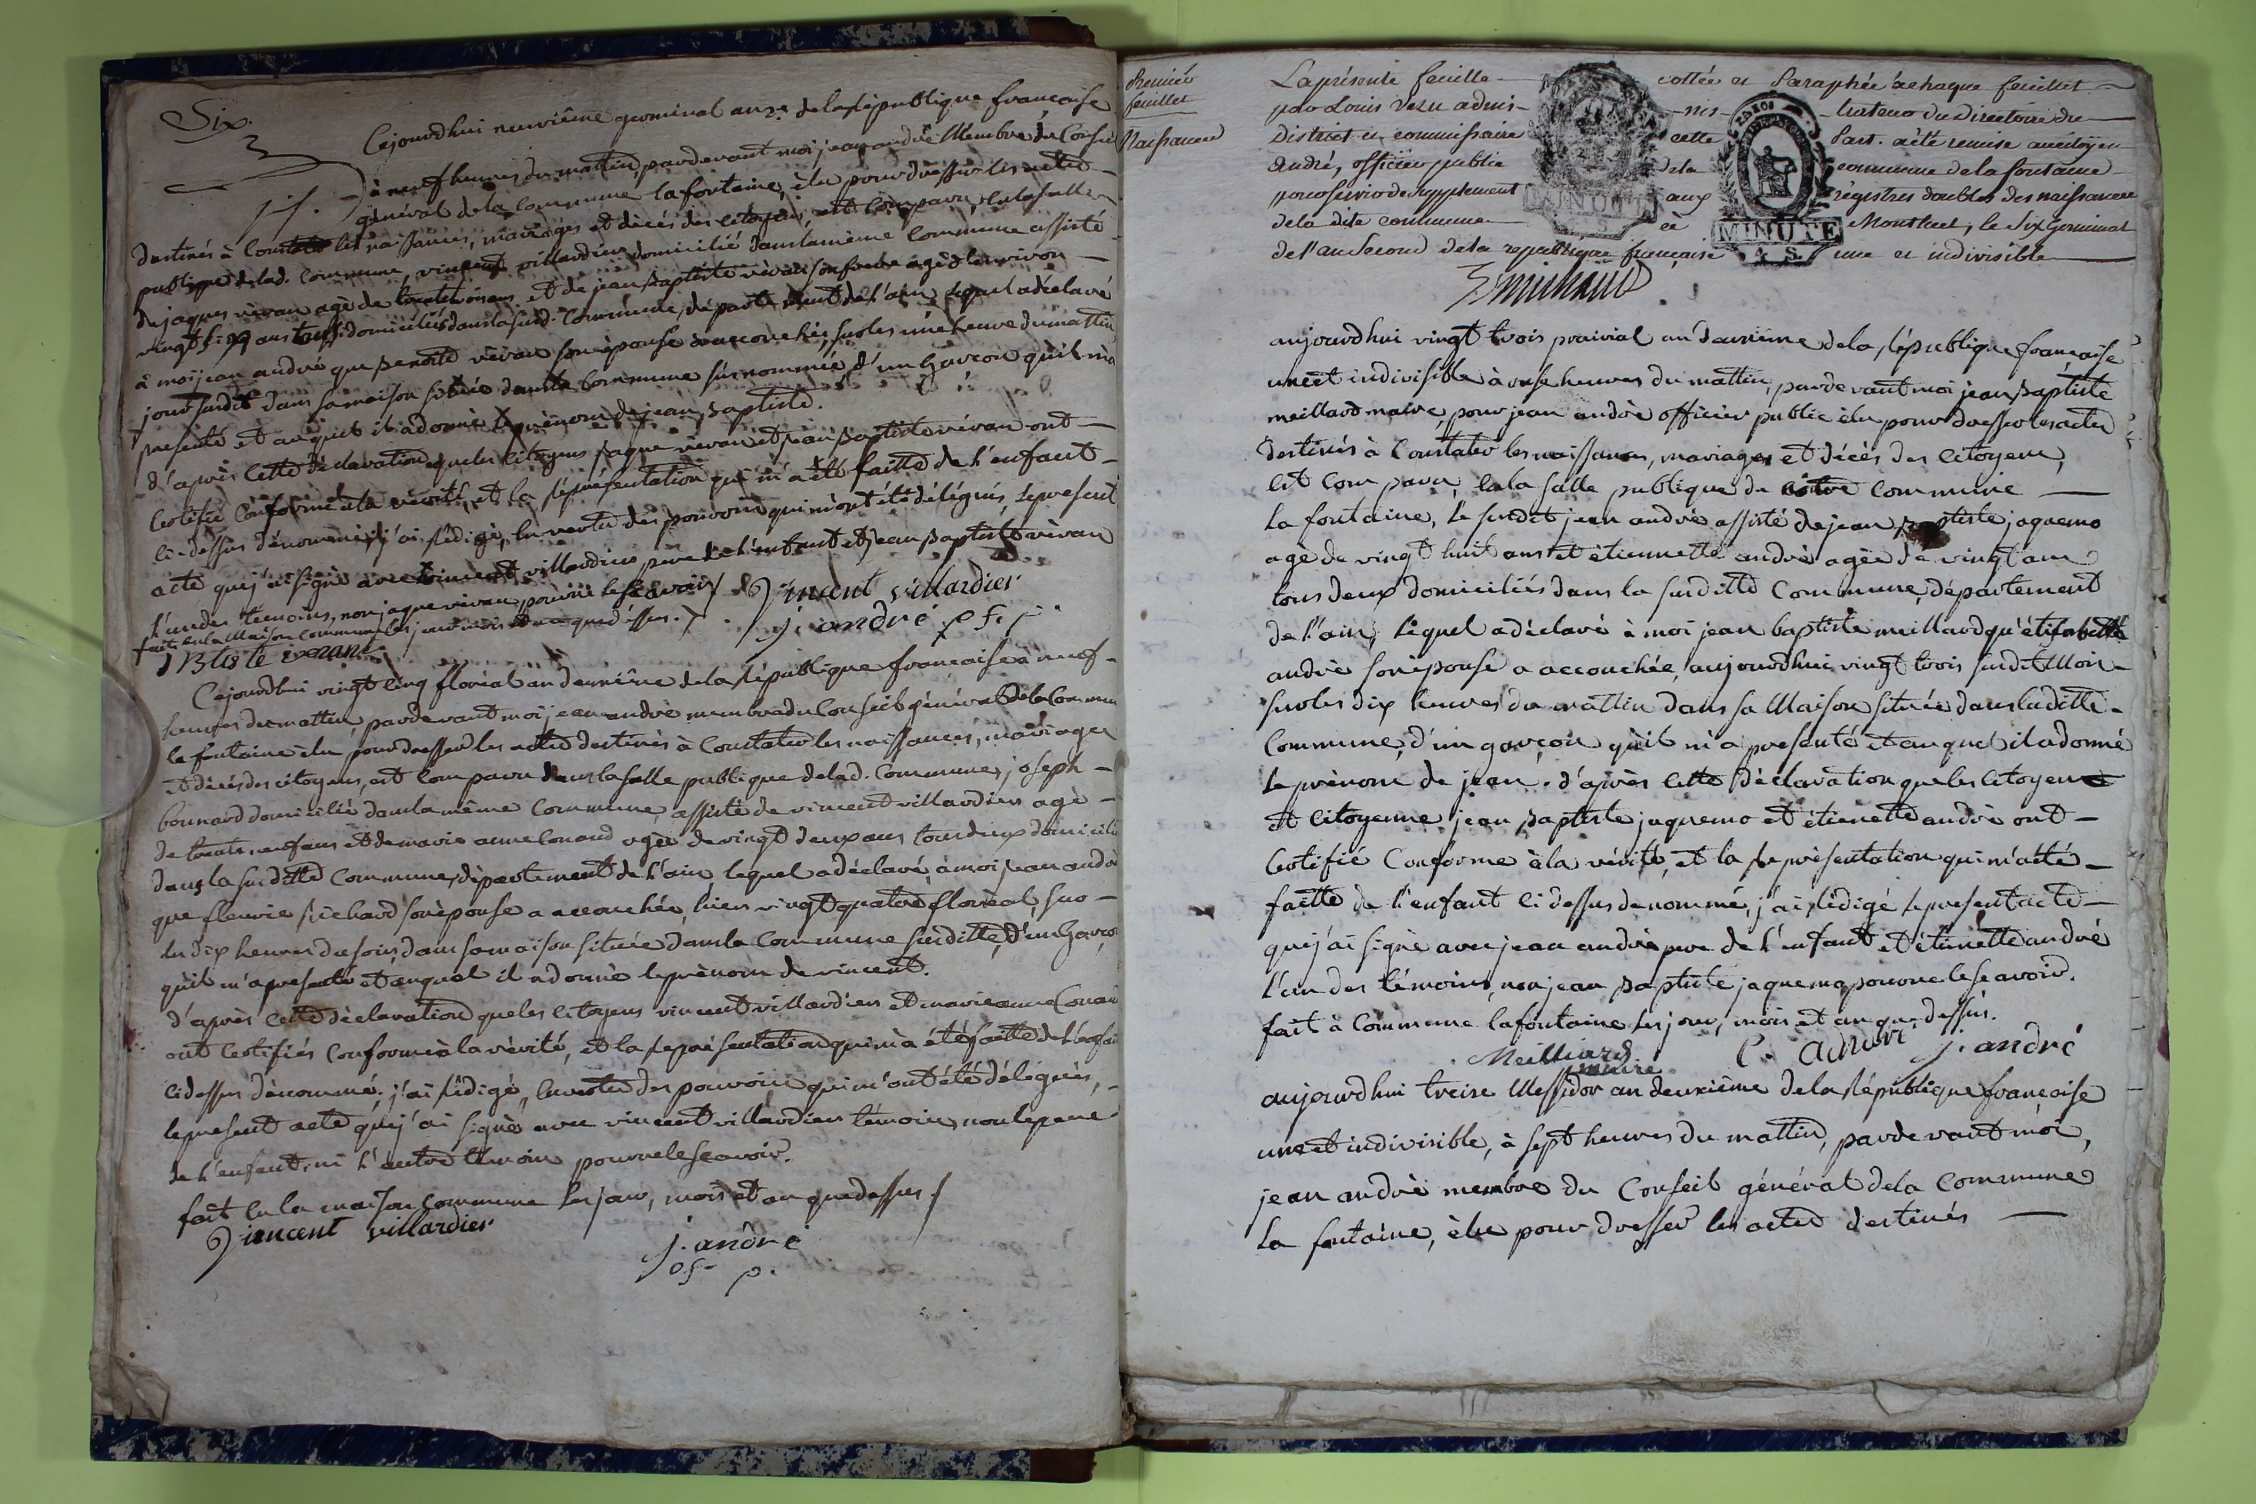 Six.
Cejourdhui neuvième germinal an 2e. de la république francaise
à neuf heures du mattin, pardevant moi jean andrè Membre du Conseil
général de la commune la fontaine, èlu pour dresser les actes
destinés à Constater les naissances, mariages et dècés des citoyens, est comparu, en la salle
publique de lad. Commune, vincent villardier domicilié dans la même commune assisté
de jaques vèran agè de ans et de jean Baptiste vèran son frere agè d'environ
vingt six ans tous domiciliés dans la susd. Commune, département de l'ain, lequel a dèclaré
à moi jean andrè que Benoite vèran son èpouse à accouchée, sur les une heure du mattin,
jour susdit dans sa maison située dans la Commune sus nommée d'un Garcon qu'il m'a
presenté et auquel il à donnè le prènom de jean Baptiste.
d'après cette dèclaration que les citoyens jaque vèran et jean Baptiste vèran ont
Certifié Conforme à la vèrité, et la réprésentation qui m'a été faitte de l'enfant
ci-dessus dénommé, j'ai rédigé, en vertu des pouvoirs qui m'ont été délégués, le present
acte que j'ai signè avec vincent villardier pere de l'enfant et jean Baptiste vèran
l'un des temoins, non jaque vèran pour ne le sçavoir
fait en la Maison commune les jour mois et an que dessus.
Vincent villardier
j. andrè o. f. p.
J Btiste veran
Cejourdhui vingt cinq floréal an deuxième de la république francaise à neuf
heures du mattin, pardevant moi jean andrè membre du Conseil général de la Commune
la fontaine èlu pour dresser les actes destinés à Constater les naissances, mariages
et décés des citoyens, est comparu dans la salle publique de lad. Commune, joseph
bonnard domicilié dans la même Commune, assisté de vincent villardier agè
de trente neuf ans et de marie anne Conand agée de vingt deux ans tous deux domiciliés
dans la susditte Commune, département de l'ain lequel a déclaré, à moi jean andrè
que fleurie Richard son èpouse a accouchée, hier vingt quatre floréal, sur
les dix heures du soir, dans sa maison située dans la Commune susditte, d'un Garcon
qu'il m'a presenté et auquel il a donnè le prènom de vincent.
d'après cette dèclaration que les citoyens vincent villardier et marie anne Conand
ont certifiés Conforme à la vèrité, et la représentation qui m'à été faitte de l'enfant
ci dessus dénommé, j'ai rédigé, en vertu des pouvoirs qui m'ont été délégués,
le present acte que j'ai signè avec vincent villardier témoin, non le pere
de l'enfant, ni l'autre témoin pour ne le scavoir.
fait en la maison commune les jour, mois et an que dessus
Vincent villardier
j. andrè
o. f. p.
Premier
feuillet
Naissances
La présente feuille cottée et Paraphée à chaque feuillet
par Louis adminis-trateur du Directoire du
District et commissaire cette Part. a été remise au citoyen
André, officier public de la commune de la fontaine
pour servir de supplement aux régistres doubles des naissances
de la dite commune à Montluel, le Six Germinal
de l'an Second de la republique française une et indivisible
MINUTE
MINUTE
4. S.
aujourdhui vingt trois prairial an deuxième de la république francaise
une et indivisible à onse heures du mattin, pardevant moi jean Baptiste
meillard maire, pour jean andrè officier public èlu pour dresser les actes
destinés à Constater les naissances, mariages et décés des citoyens,
est comparu en la salle publique de notre commune
la fontaine, le susdit jean andrè assisté de jean Baptiste jaquemo
agé de vingt huit ans et étiennette andrè agée de vingt ans
tous deux domiciliés dans la susditte Commune, département
de l'ain, lequel a dèclaré à moi jean baptiste meillard qu'élisabette
andrè son èpouse a accouchée, aujourdhui vingt trois susdit Mois
sur les dix heures du mattin dans sa Maison située dans laditte
Commune, d'un garçon qu'il m'a presenté et auquel il a donné
le prènom de jean. d'après cette dèclaration que les citoyens
et citoyenne jean Baptiste jaquemo et étienette andrè ont
Certifié Conforme à la vérité, et la représentation qui m'a été
faitte de l'enfant ci dessus denommé, j'ai rédigé le present acte
que j'ai signè avec jean andrè pere de l'enfant et étienette andrè
l'un des témoins, non jean Baptiste jaquemo pour ne le scavoir.
fait à Commune la fontaine les jour, mois et an que dessus.
Meilliard
maire
E. andre j. andrè
aujourdhui treize Messidor an deuxième de la république francaise
une et indivisible, à sept heures du mattin, pardevant moi,
jean andrè membre du Conseil général de la Commune
la fontaine, èlu pour dresser les actes destinés